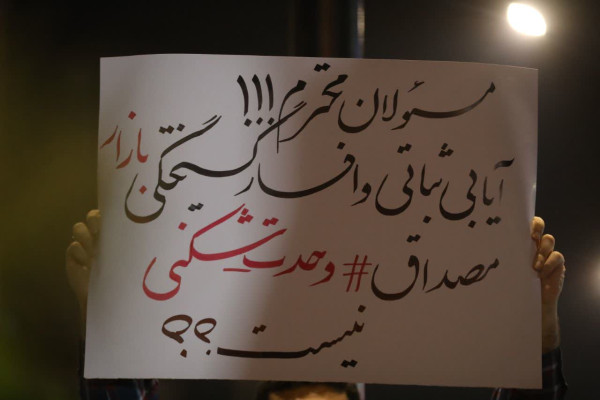 مسئولان محترم!!!
آیا بی ثباتی و افسارگسیختگی بازار
مصداق #وحدت_شکنی
نیست؟؟